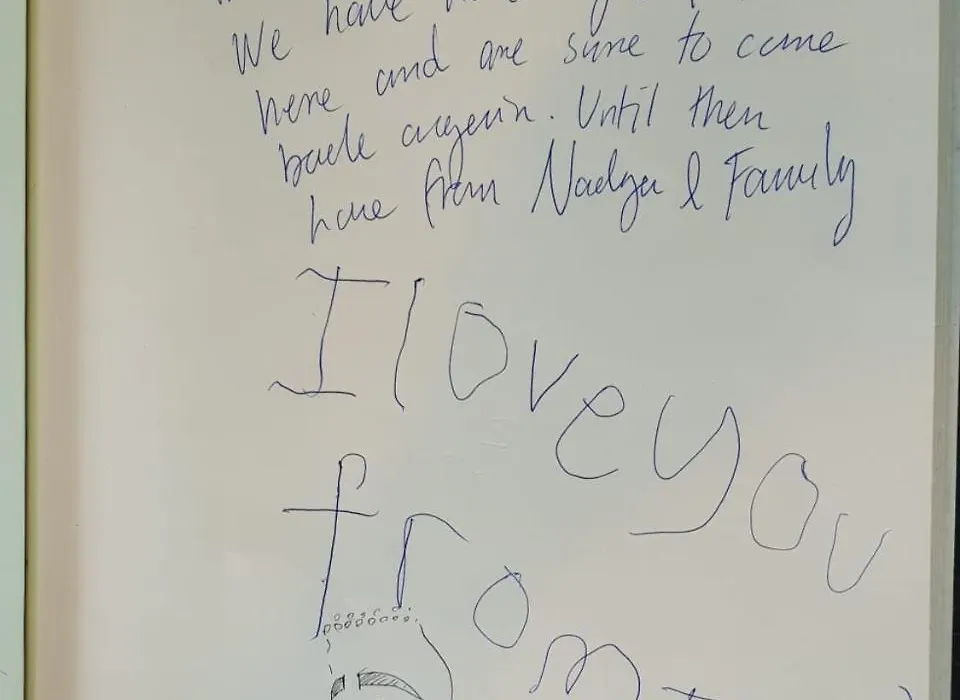 We have
here and are sure to come
back again. Until then
from & Family
I love you
from